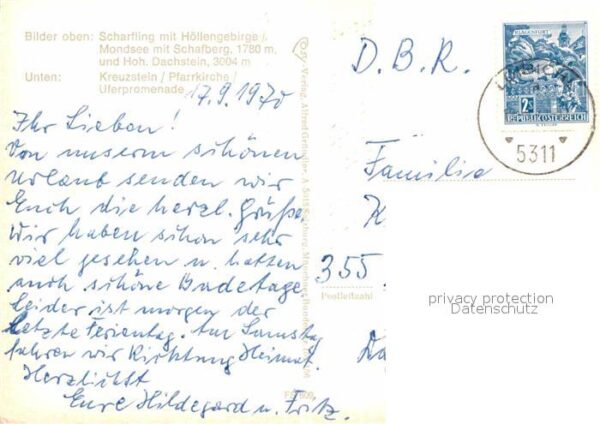 Bilder oben: Scharfling mit Höllengebirge /
Mondsee mit Schafberg, 1780 m.
und Hoh. Dachstein, 3004 m
Unten: Kreuzstein / Pfarrkirche /
Uferpromenade
17.9.1970
Ihr Lieben!
Von unserm schönen
Urlaub senden wir
Euch die herzl. Grüße
Wir haben schon sehr
viel gesehen u. hatten
auch schöne Badetage
Leider ist morgen der
letzte Ferientag. Am Samstag
fahren wir Richtung Heimat.
Herzlichst
Eure Hildegard u. Fritz.
D. B. R.
Familie
K
355
Postleitzahl
KLAGENFURT
2S
REPUBLIK ÖSTERREICH
5311
privacy protection
Datenschutz